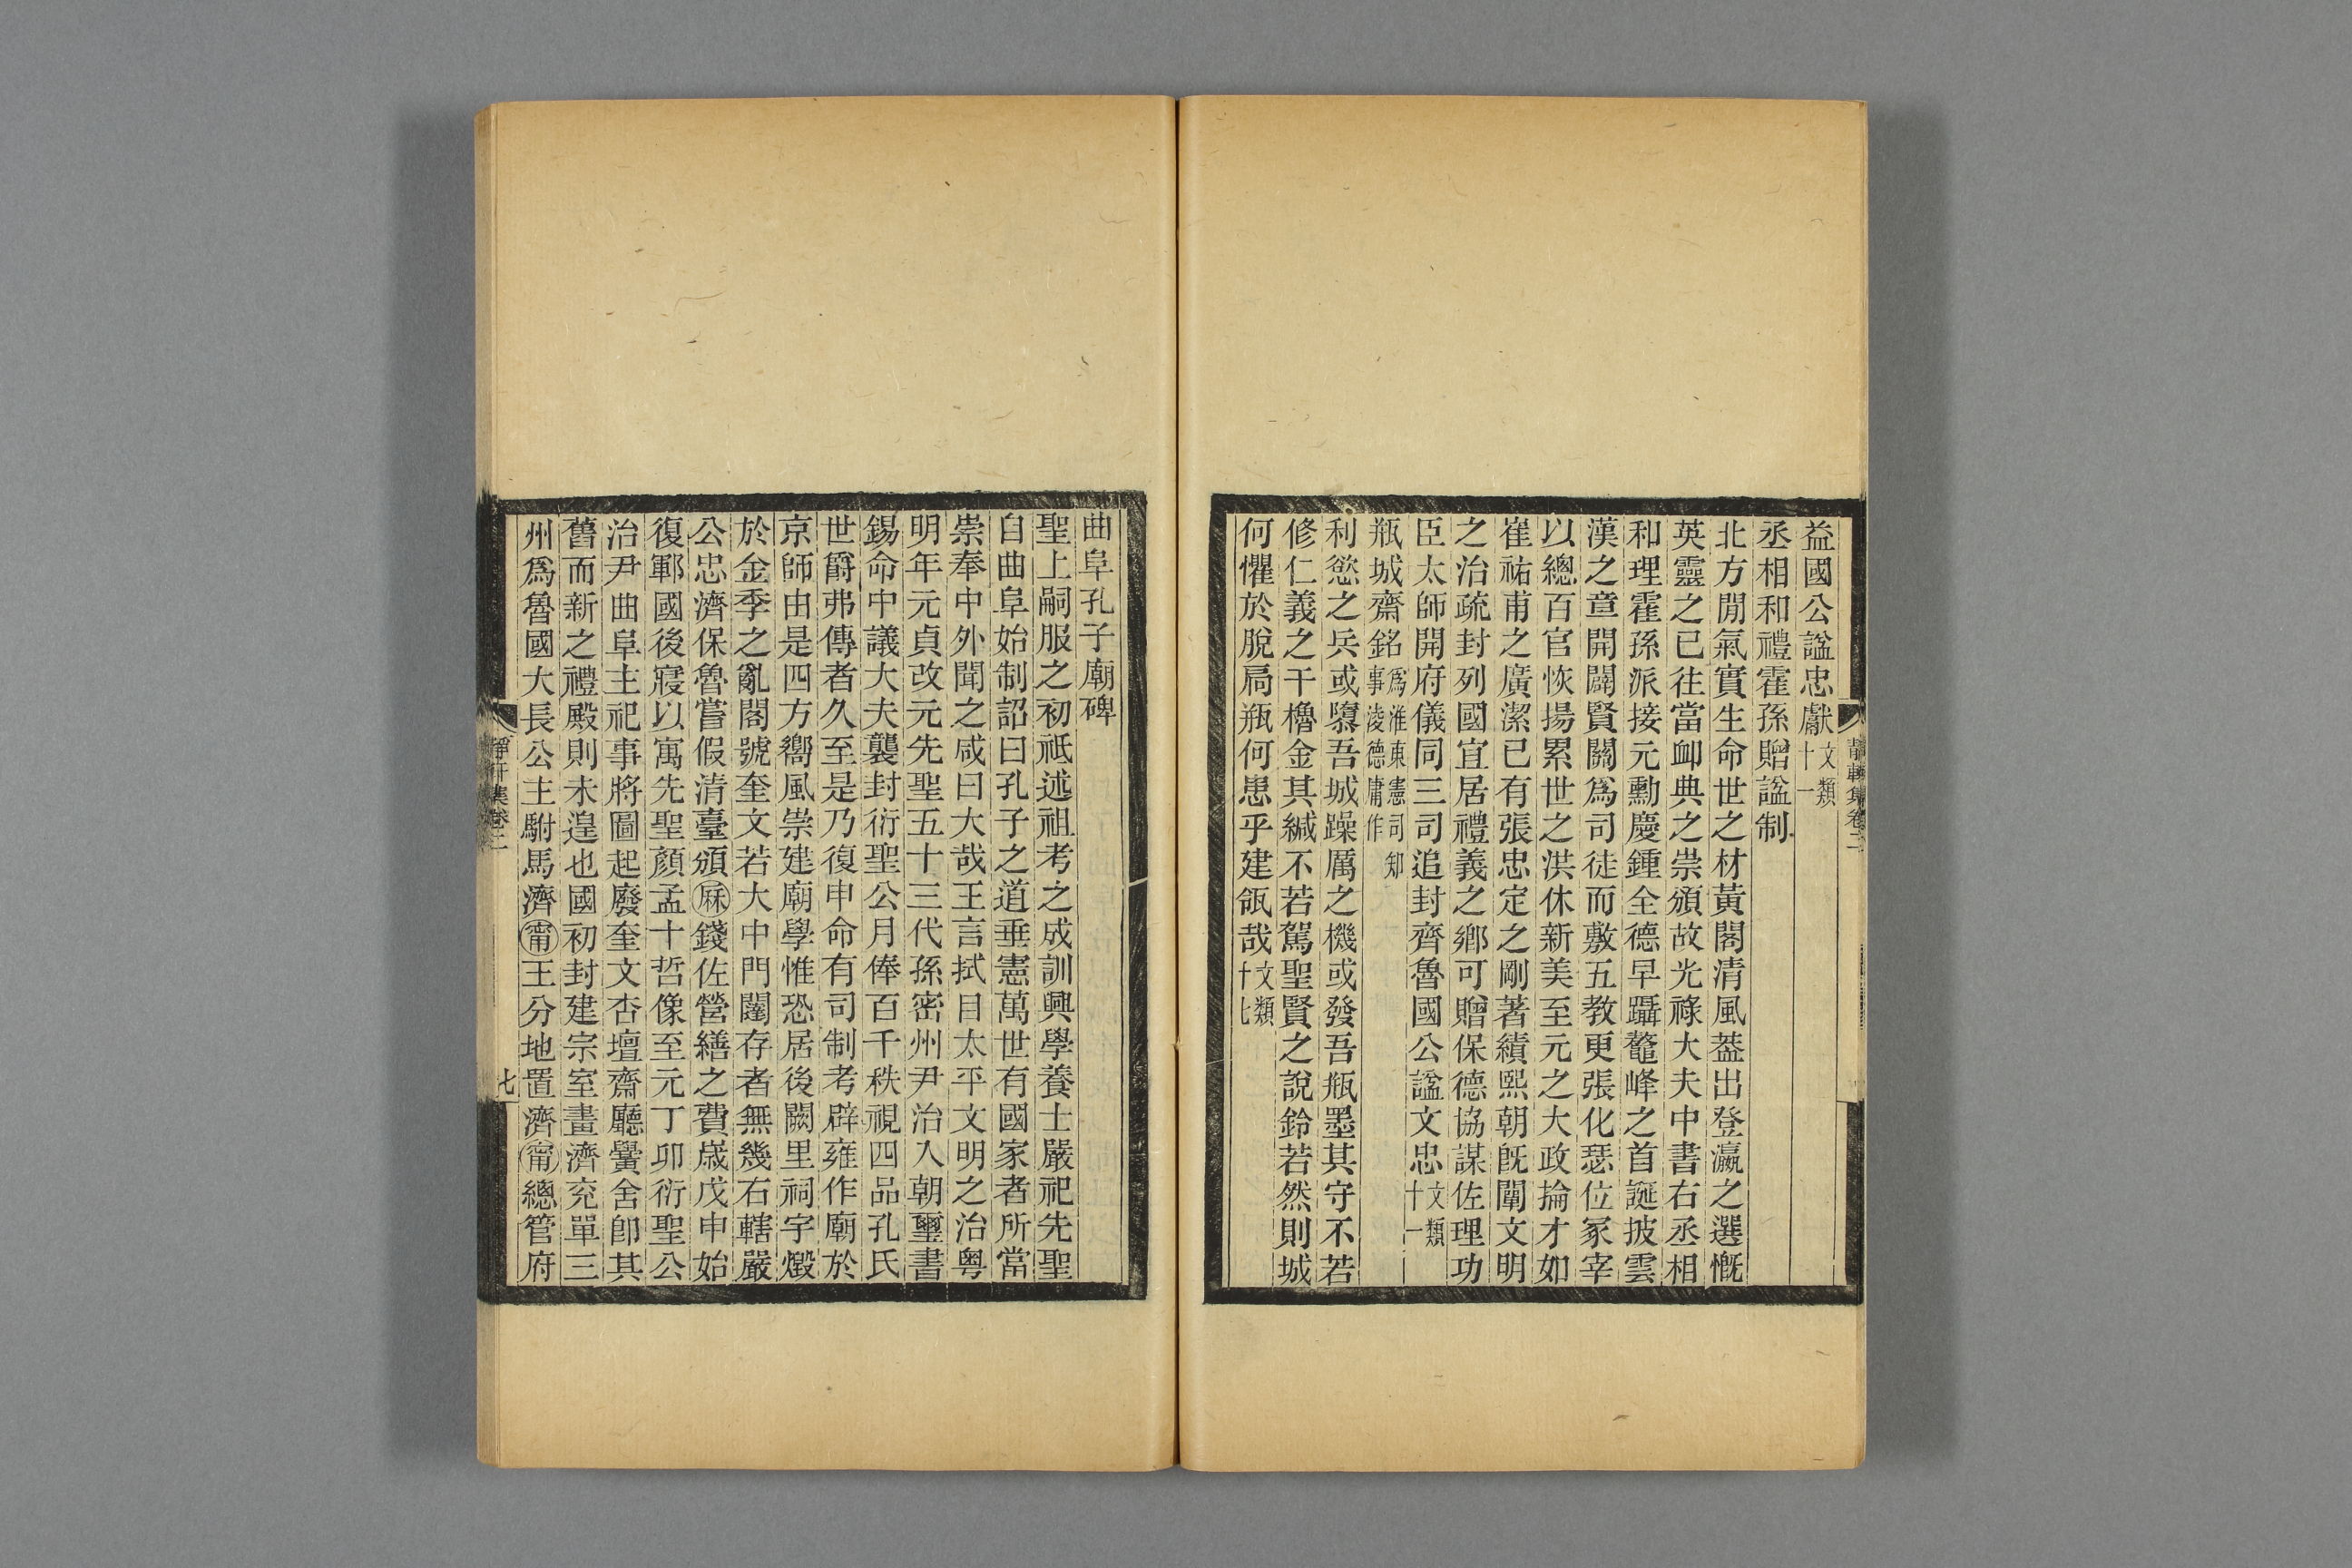 益國公諡忠獻文類十一
丞相和禮霍孫贈諡制
北方閒氣實生命世之材黃閣清風葢出登瀛之選慨
英靈之已往當卹典之崇頒故光祿大夫中書右丞相
和理霍孫派接元勳慶鍾全德早躡鼇峰之首誕披雲
漢之章開闢賢關爲司徒而敷五教更張化瑟位冢宰
以總百官恢揚累世之洪休新美至元之大政掄才如
崔祐甫之廣潔已有張忠定之剛著績熙朝旣闡文明
之治疏封列國宜居禮義之鄉可贈保德協謀佐理功
臣太師開府儀同三司追封齊魯國公諡文忠文類十一
瓶城齋銘爲淮東憲司知事淩德庸作
利慾之兵或隳吾城躁厲之機或發吾瓶墨其守不若
修仁義之干櫓金其緘不若駕聖賢之說鈴若然則城
何懼於脫扃瓶何患乎建瓴哉文類十七
靜軒集卷二
曲阜孔子廟碑
聖上嗣服之初祗述祖考之成訓興學養士嚴祀先聖
自曲阜始制詔曰孔子之道垂憲萬世有國家者所當
崇奉中外聞之咸曰大哉王言拭目太平文明之治粵
明年元貞改元先聖五十三代孫密州尹治入朝璽書
錫命中議大夫襲封衍聖公月俸百千秩視四品孔氏
世爵弗傳者久至是乃復申命有司制考辟雍作廟於
京師由是四方嚮風崇建廟學惟恐居後闕里祠宇燬
於金季之亂閣號奎文若大中門闥存者無幾右轄嚴
公忠濟保魯嘗假清臺頒厤錢佐營繕之費歲戊申始
復鄆國後寢以寓先聖顏孟十哲像至元丁卯衍聖公
治尹曲阜主祀事將圖起廢奎文杏壇齋廳黌舍卽其
舊而新之禮殿則未遑也國初封建宗室畫濟兗單三
州爲魯國大長公主駙馬濟甯王分地置濟甯總管府
靜軒集卷二
七